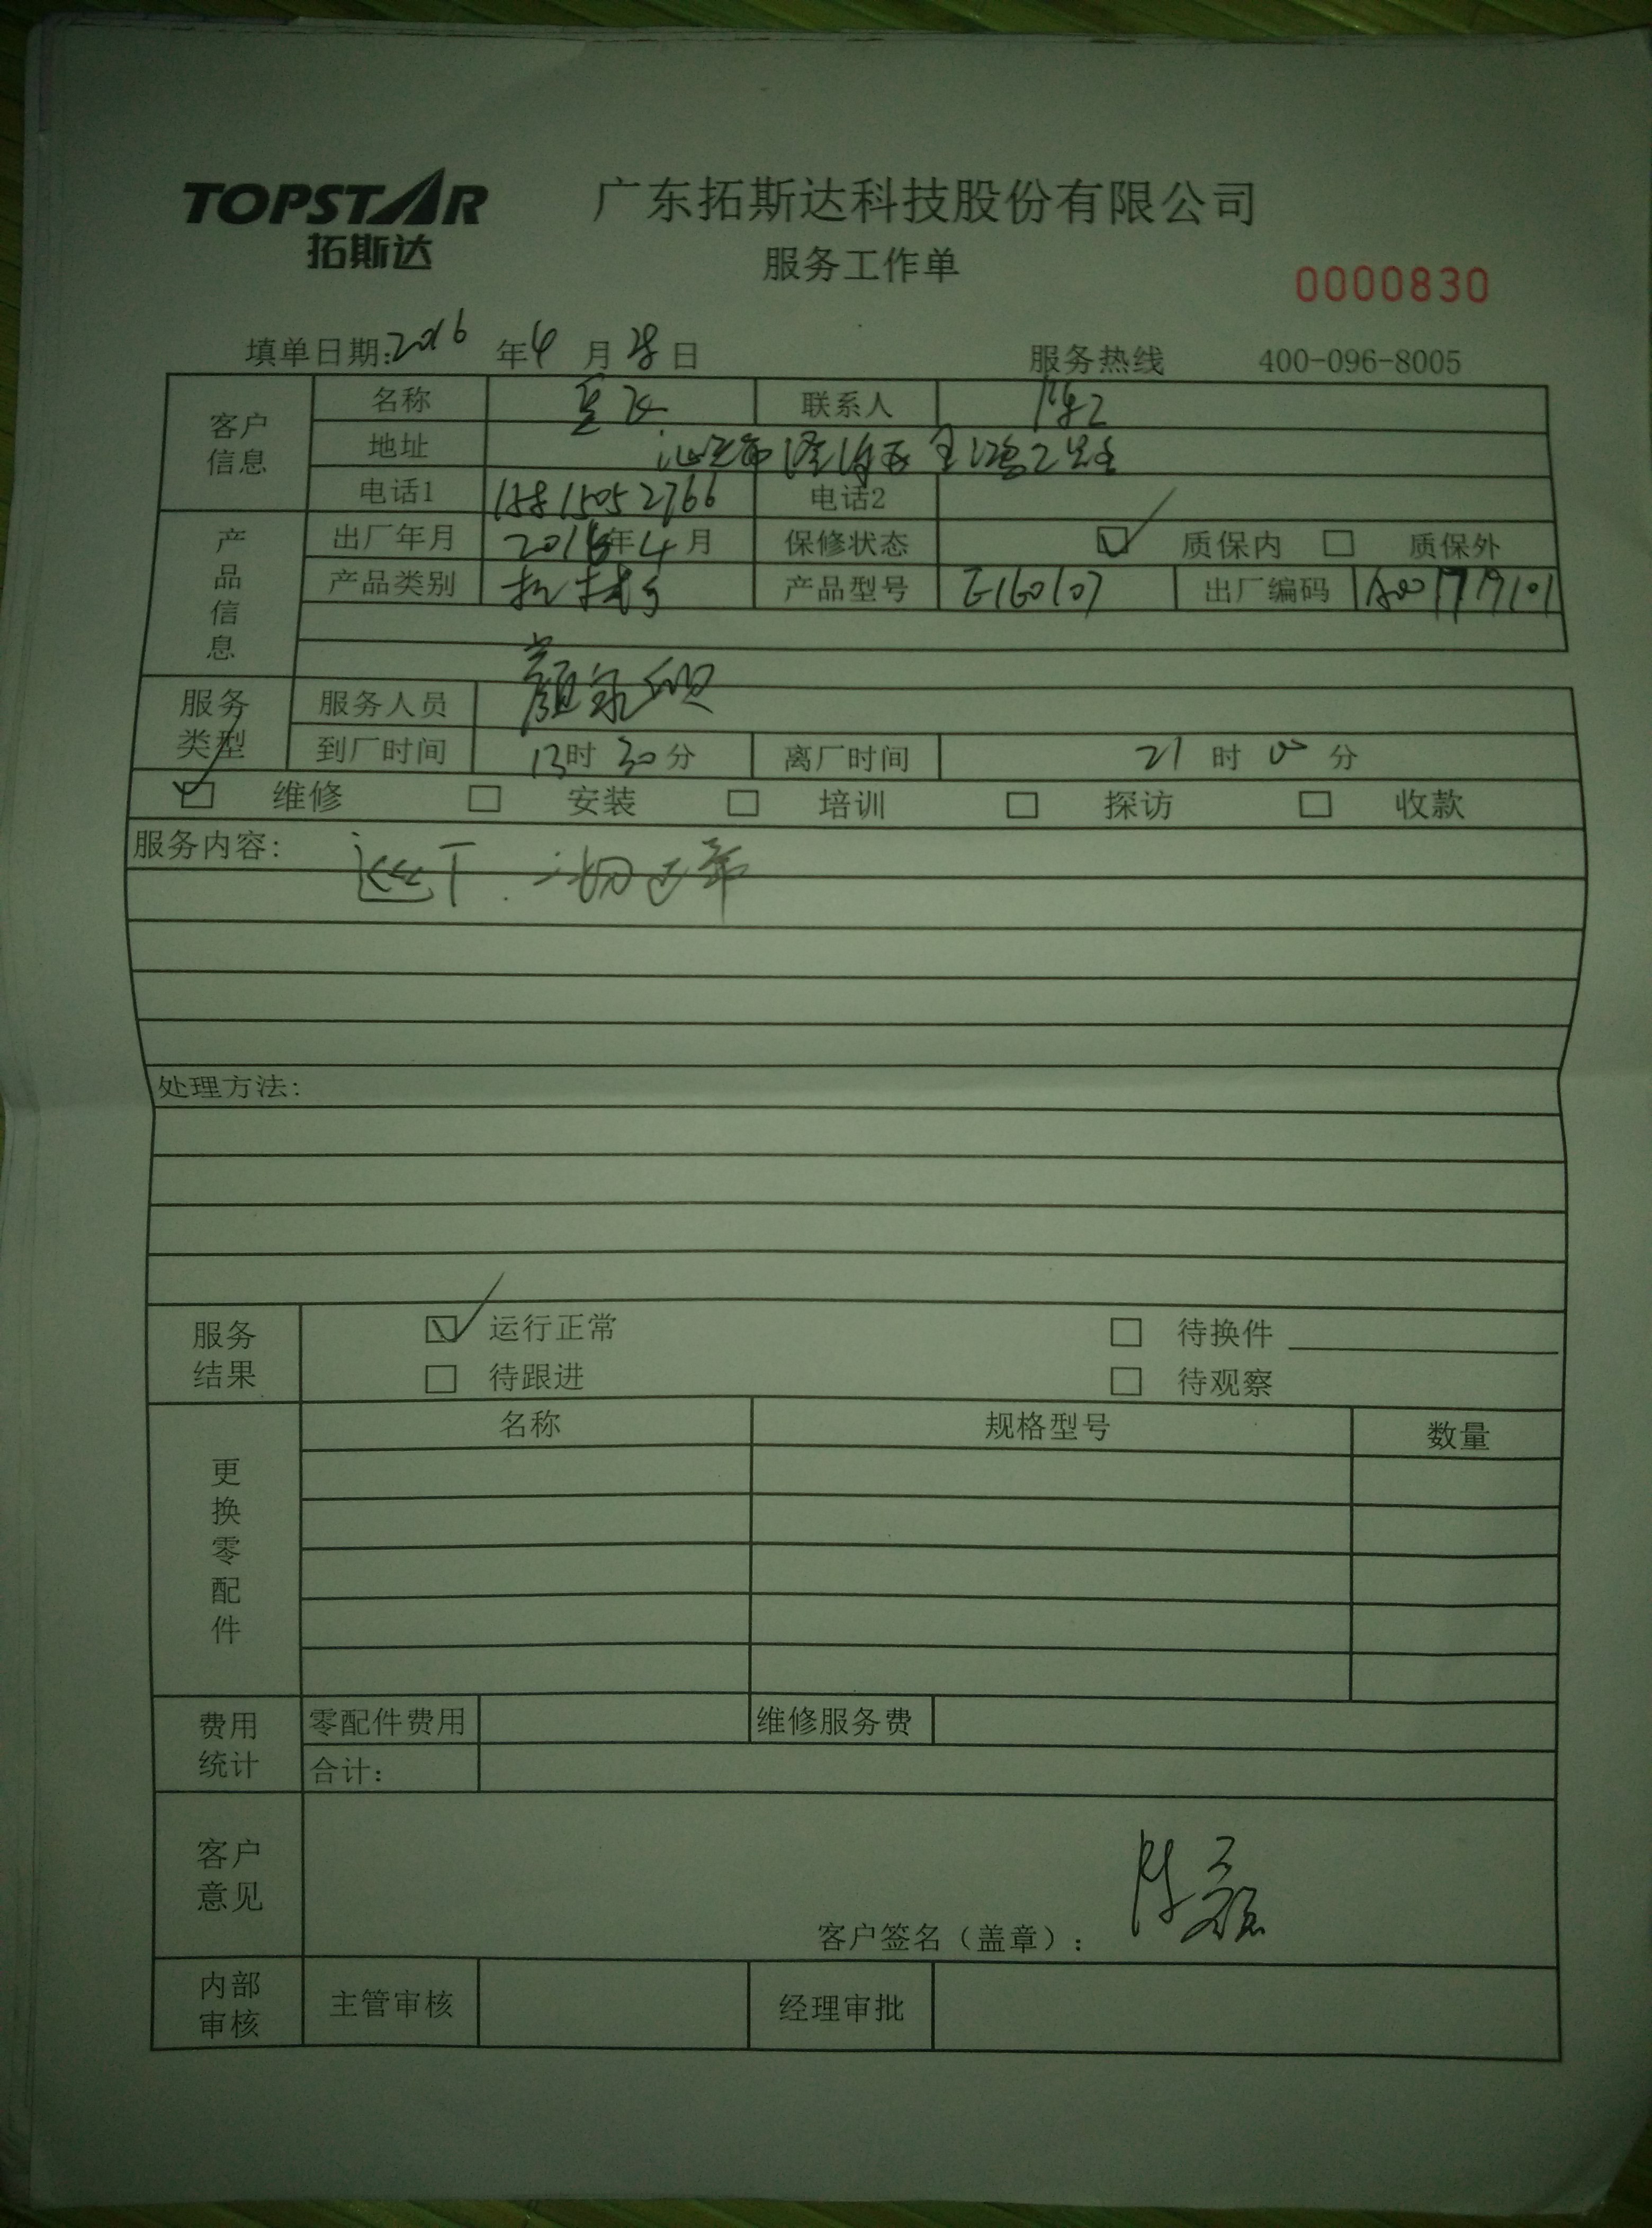 TOPSTAR
拓斯达
广东拓斯达科技股份有限公司
服务工作单
0000830
填单日期:2016年4月28日
服务热线 400-096-8005
客户信息
名称
联系人 陈工
地址
电话1 15815052766 电话2
产品信息
出厂年月 2016年4月 保修状态 质保内 质保外
产品类别 机械手 产品型号 E160107 出厂编码
服务类型
服务人员 颜
到厂时间 13时30分 离厂时间 21时00分
维修 安装 培训 探访 收款
服务内容: 一切正常
处理方法:
服务结果
运行正常 待换件
待跟进 待观察
更换零配件
名称 规格型号 数量
费用统计
零配件费用 维修服务费
合计:
客户意见
客户签名（盖章）: 陈
内部审核
主管审核 经理审批